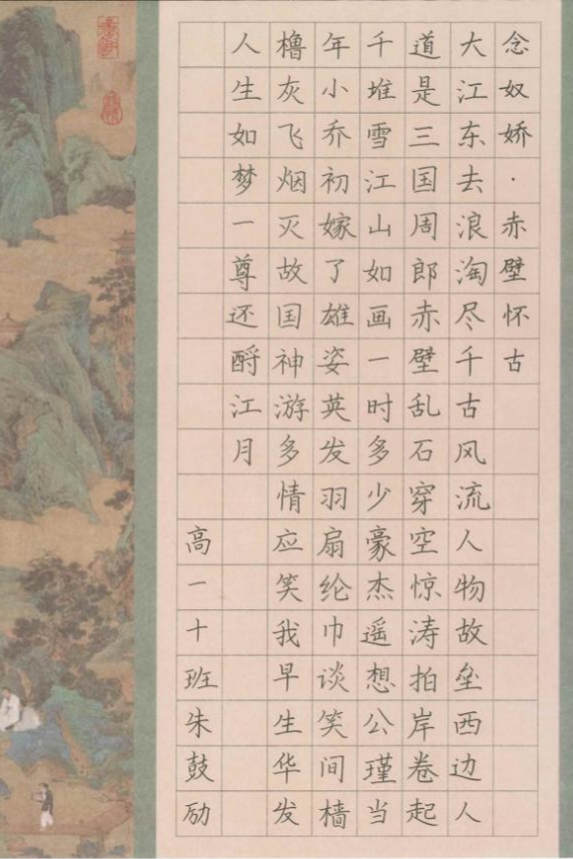 念奴娇·赤壁怀古
大江东去浪淘尽千古风流人物故垒西边人
道是三国周郎赤壁乱石穿空惊涛拍岸卷起
千堆雪江山如画一时多少豪杰遥想公瑾当
年小乔初嫁了雄姿英发羽扇纶巾谈笑间樯
橹灰飞烟灭故国神游多情应笑我早生华发
人生如梦一尊还酹江月
高一十班朱鼓励